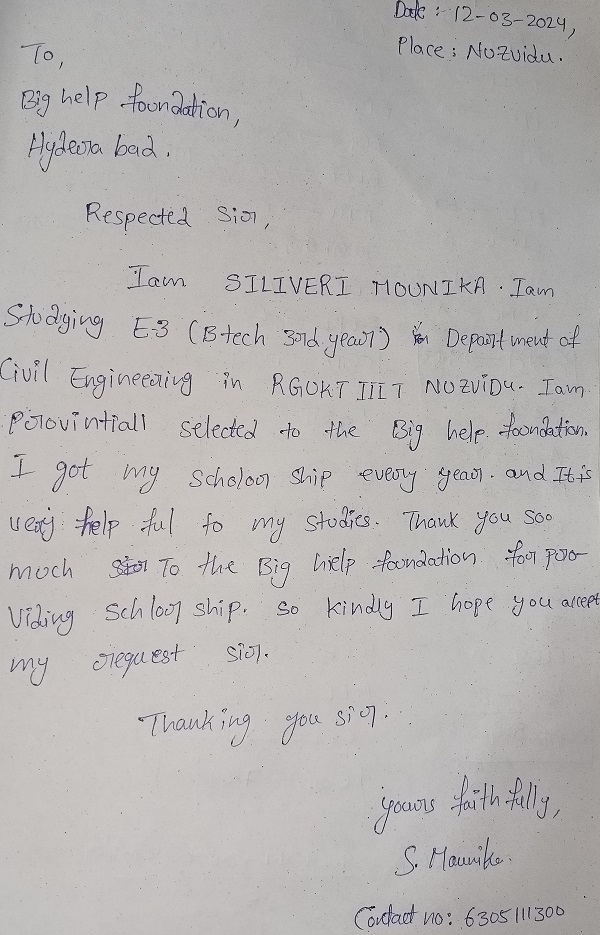 Date :- 12-03-2024,
Place : Nuzvidu.
To,
Big help foundation,
Hydera bad.
Respected Sir,
Iam SILIVERI MOUNIKA. Iam
Studying E-3 (B-tech 3rd year) in Department of
Civil Engineering in RGUKT IIIT NUZVIDU. Iam
Provintiall selected to the Big help foundation.
I got my Scholor Ship every year. and It is
very help ful to my studies. Thank you soo
much To the Big hielp foundation for pro
Viding Schlor ship. so kindly I hope you accept
my request sir.
Thanking you sir.
yours faith fully,
S. Mounika.
Contact no: 6305111300